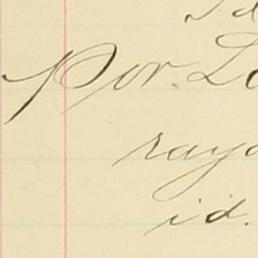 Id
Por. Lo
raya
id.